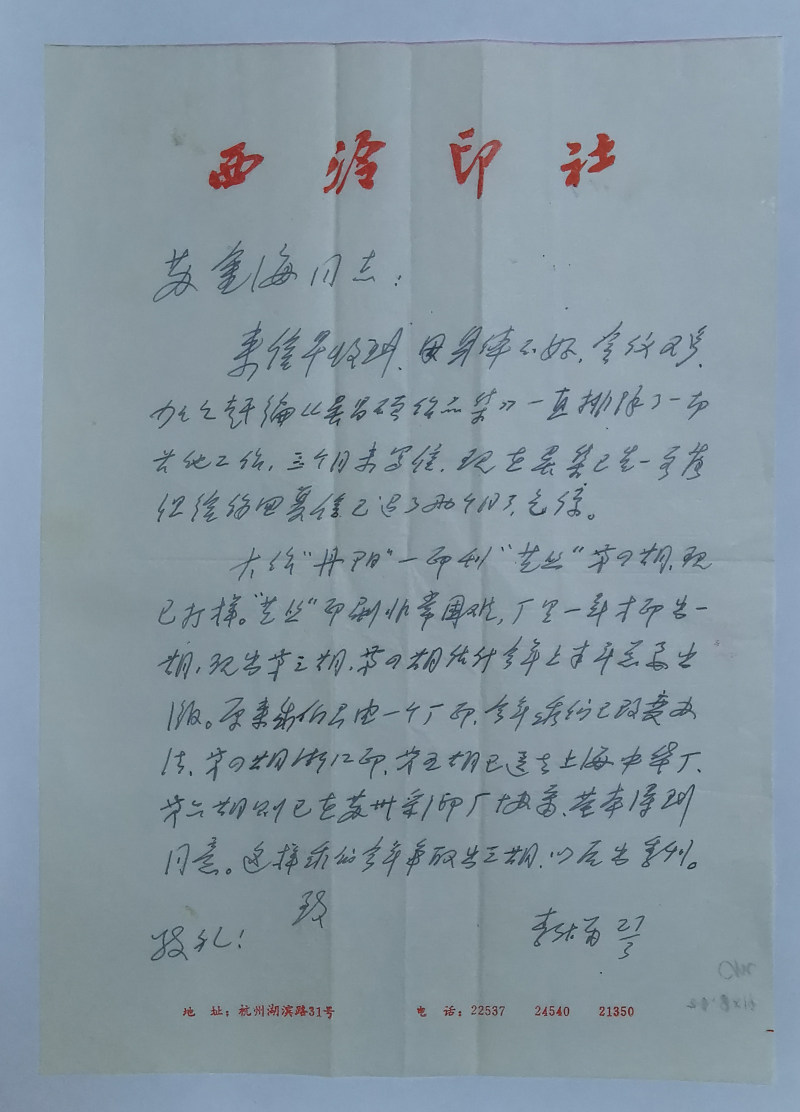 西泠印社
苏金海同志：
来信早收到，因身体不好，会议又多，
加之赶编《吴昌硕作品集》一直排除了一切
其他工作，三个月未写信，现在吴集已告一段落
但给你回复信已迟了两个月了，乞谅。
大作"丹阳"一印刊"艺丛"第四期，现
已打样。"艺丛"印刷非常困难，厂里一年才印出一
期，现出第三期，第四期估计今年上半年总要出
版。原来我们只由一个厂印，今年我们已改变办
法，第四期浙江印，第五期已送去上海中华厂，
第六期则已在苏州彩印厂协商，基本得到
同意。这样我们今年争取出三期，以后出季刊。
致
敬礼！
27/3
地 址：杭州湖滨路31号 电 话：22537 24540 21350